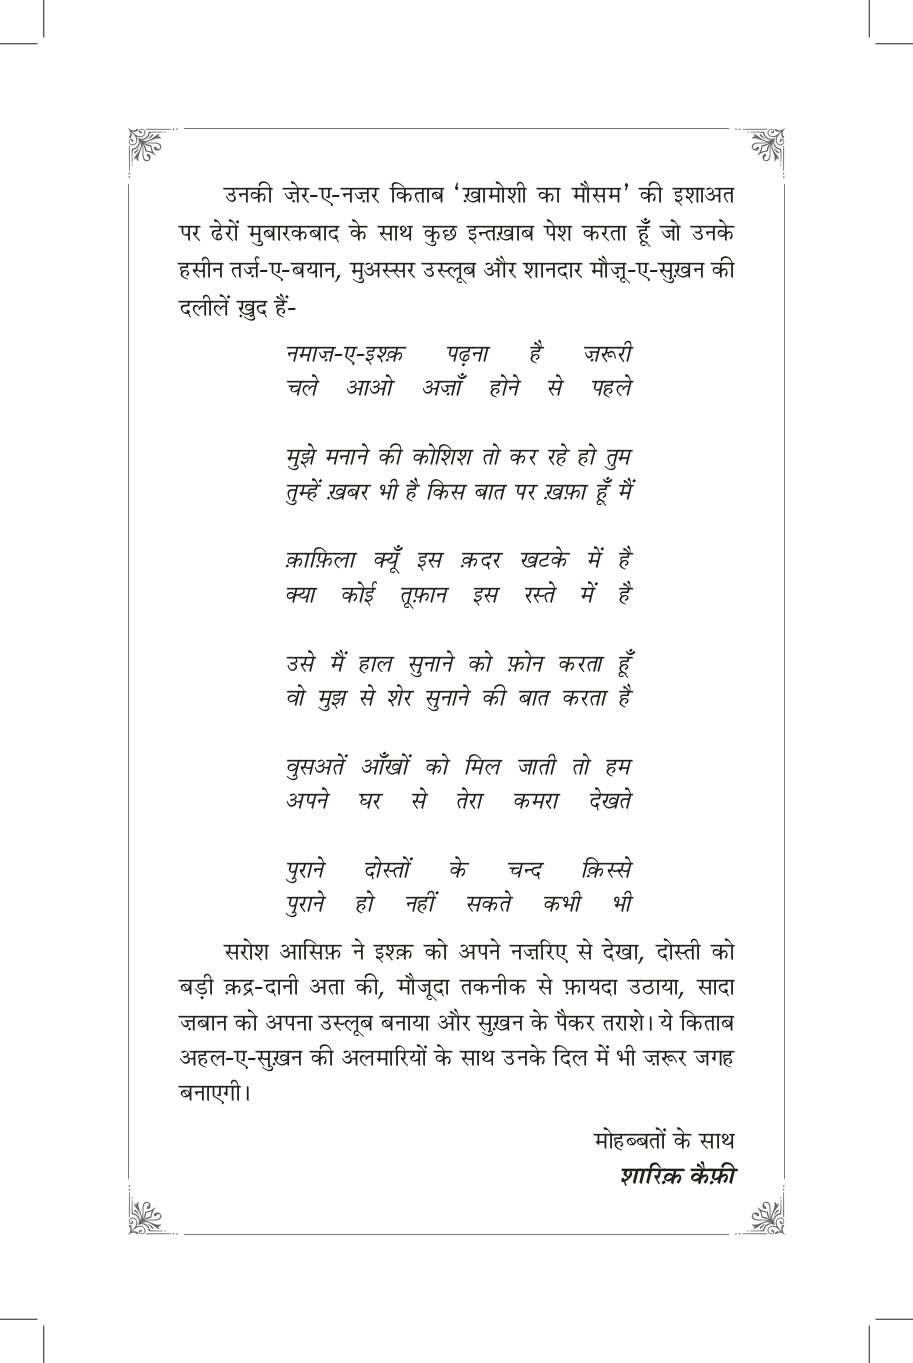 उनकी ज़ेर-ए-नज़र किताब ‘ख़ामोशी का मौसम’ की इशाअत
पर ढेरों मुबारकबाद के साथ कुछ इन्तख़ाब पेश करता हूँ जो उनके
हसीन तर्ज़-ए-बयान, मुअस्सर उस्लूब और शानदार मौज़ू-ए-सुख़न की
दलीलें ख़ुद हैं-
नमाज़-ए-इश्क़ पढ़ना है ज़रूरी
चले आओ अज़ाँ होने से पहले
मुझे मनाने की कोशिश तो कर रहे हो तुम
तुम्हें ख़बर भी है किस बात पर ख़फ़ा हूँ मैं
क़ाफ़िला क्यूँ इस क़दर खटके में है
क्या कोई तूफ़ान इस रस्ते में है
उसे मैं हाल सुनाने को फ़ोन करता हूँ
वो मुझ से शेर सुनाने की बात करता है
वुसअतें आँखों को मिल जाती तो हम
अपने घर से तेरा कमरा देखते
पुराने दोस्तों के चन्द क़िस्से
पुराने हो नहीं सकते कभी भी
सरोश आसिफ़ ने इश्क़ को अपने नज़रिए से देखा, दोस्ती को
बड़ी क़द्र-दानी अता की, मौजूदा तकनीक से फ़ायदा उठाया, सादा
ज़बान को अपना उस्लूब बनाया और सुख़न के पैकर तराशे। ये किताब
अहल-ए-सुख़न की अलमारियों के साथ उनके दिल में भी ज़रूर जगह
बनाएगी।
मोहब्बतों के साथ
शारिक़ कैफ़ी